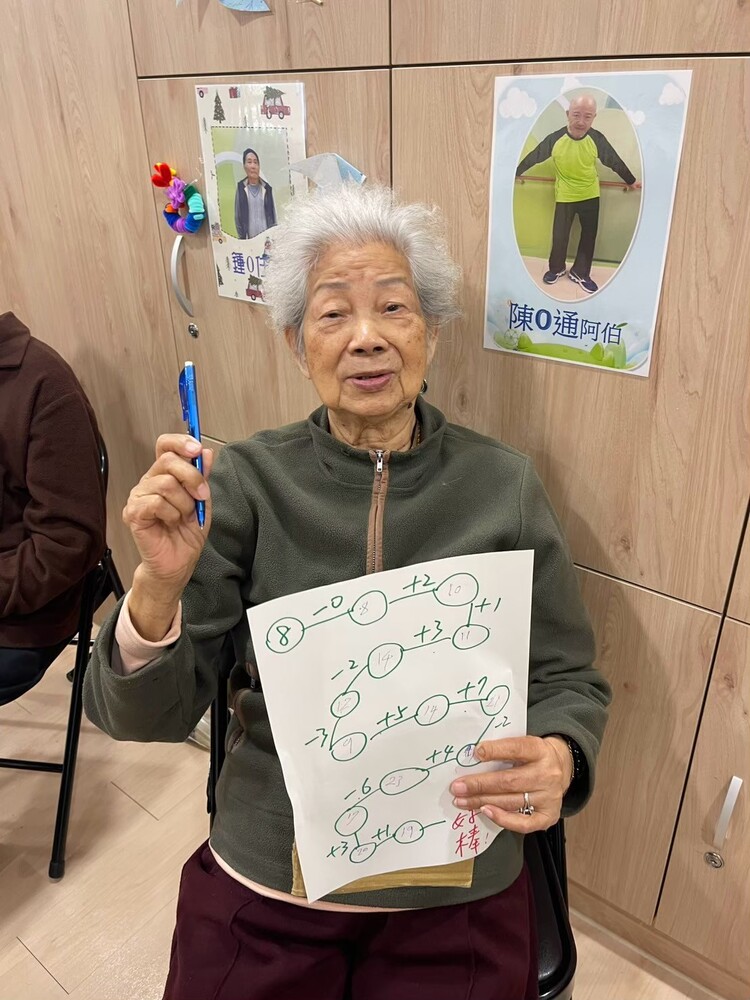 鍾O任
陳O通阿伯
8 -0 8 +2 10
+1
-2 14 +3 11
12
-3 9 +5 14 +7 21
-2
-6 23 +4 19
17
+3 20 +1 19
好
棒!